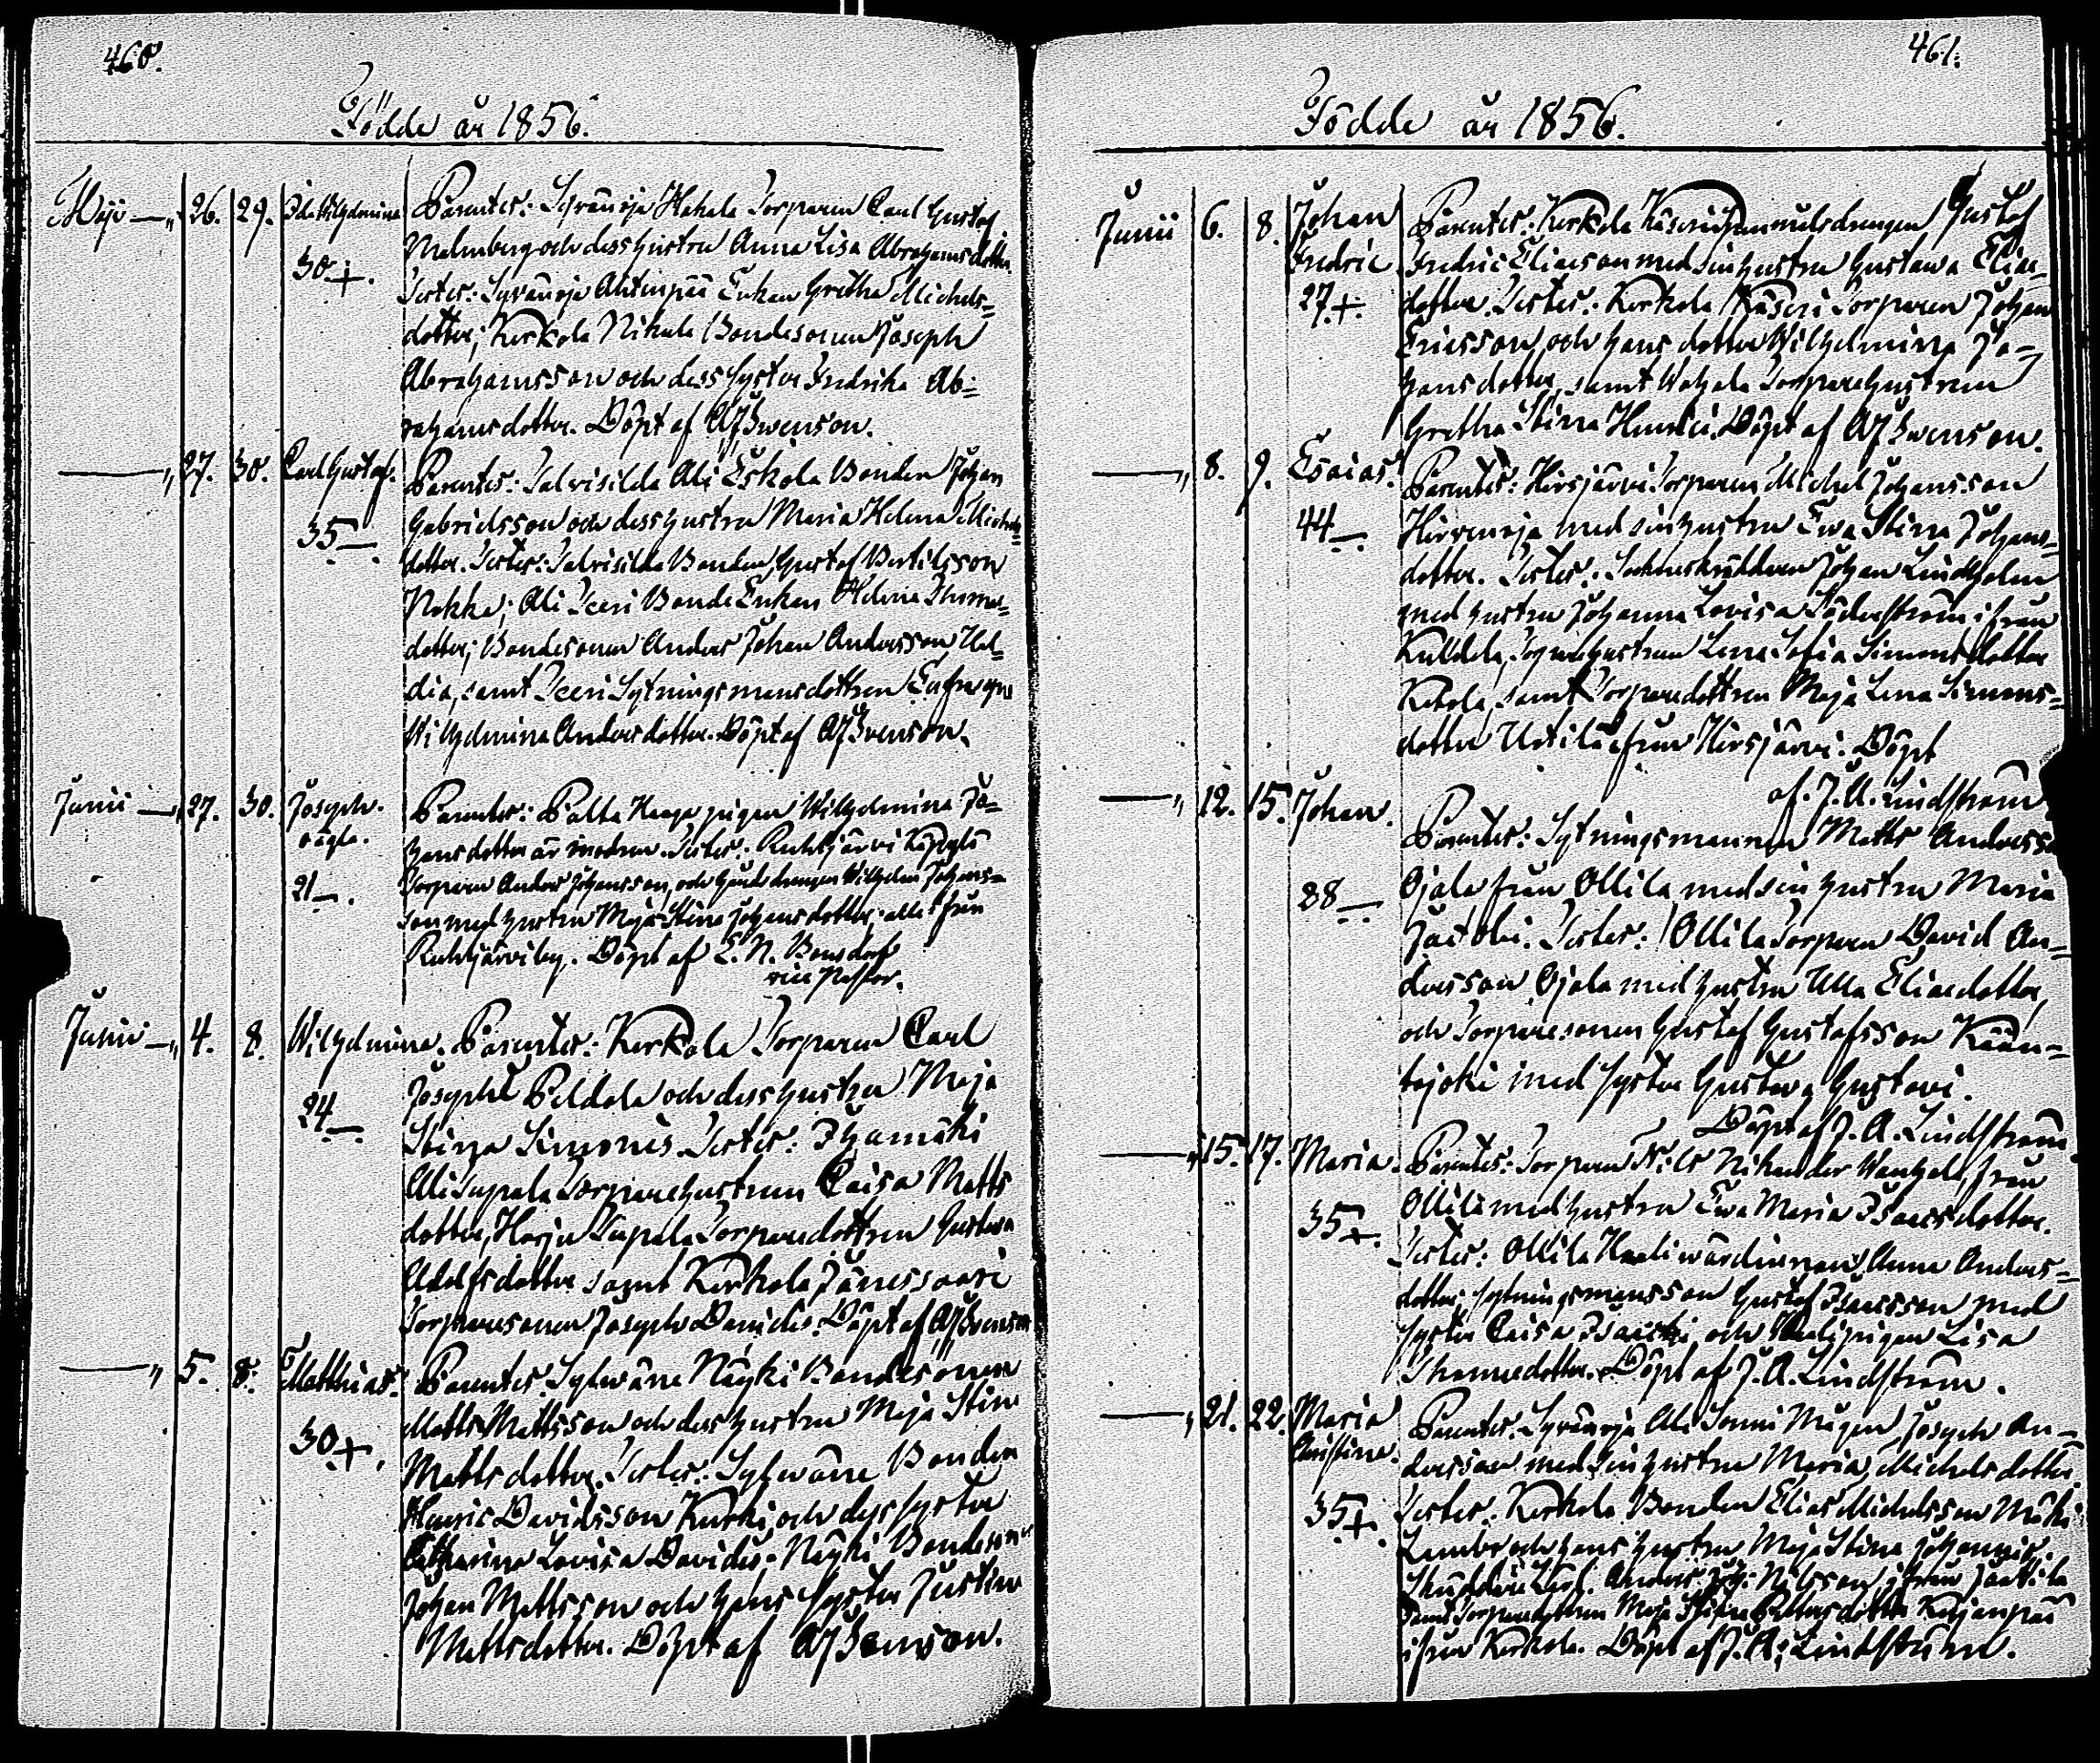 460.
Födde år 1856.
Maji — „ 26. 29. Ida Wilhelmina 30+. Parentes: Syvänoja Hakala Torparen Carl Gustaf
Malmberg och dess hustru Anna Lisa Abrahamsdotter.
Testes: Syvänoja Ahtinpää Enkan Gretha Michels=
dotter; Kerkola Nikula Bondesonen Joseph
Abrahamsson och dess syster Fredrika Ab=
rahamsdotter. Döpt af AJSwenson.
— „ 27. 30. Carl Gustaf. 35—. Parentes: Talvisilda Ali Eskola Bonden Johan
Gabrielsson och dess hustru Maria Helena Michels=
dotter. Testes: Talvisilda Bonden Gustaf Bertilsson
Nokka; Ali Seeri Bonde Enkan Helena Thomas=
dotter; Bondesonen Anders Johan Andersson
samt Seeri Sytningsmansdottren
Wilhelmina Andersdotter. Döpt af AJSwenson.
Junii — „ 27. 30. Joseph. oägta. 21—. Parentes: Palta Haapa pigan Wilhelmina Jo=
hansdotter är modren. Testes: Ruhtjärvi
Torparen Anders Johansson, och Gårdsdrengen Wilhelm Johans=
son med hustru Maja Stina Johansdotter, alla från
Ruhtjärvi by. Döpt af E. N. Bonsdorf
vice Pastor.
Junii — „ 4. 8. Wilhelmina. 24—. Parentes: Kerkola Torparen Carl
Josephi Peldola och dess hustru Maja
Stina Simonis. Testes: Ihamäki
Ali Supala Torparehustrun Caisa Matts
dotter, Harju Supala Torparedottren Gustava
Adolfsdotter samt Kerkola Jänessaari
Torparesonen Joseph Davidis. Döpt af AJSwenson
— „ 5. 8. Matthias. 30+. Parentes: Sylwäne Näyki Bondesonen
Matts Mattsson och dess hustru Maja Stina
Mattsdotter. Testes: Sylwäne Bonden
Henric Davidsson Kurki och dess syster
Catharina Lovisa Davidis. Näyki Bondeson
Johan Mattsson och hans syster Justina
Mattsdotter. Döpt af AJSwenson.
461.
Födde år 1856.
Junii 6. 8. Johan Fredric 27.+. Parentes: Kerkola Käseri Gammelsdrengen Gustaf
Fredric Eliaeson med sin hustru Gustava Eliae=
dotter. Testes: Kerkola Käseri Torparen Johan
Ericsson, och hans dotter Wilhelmina Jo=
hansdotter, samt Torparehustrun
Gretha Stina Henrici. Döpt af AJSwenson.
— „ 8. 9. Esaias. 44—. Parentes: Hirsjärvi Torparen Michel Johansson
Hirvenoja med sin hustru Ewa Stina Johans=
dotter. Testes: Sockneskräddaren Johan Lindholm
med hustru Johanna Lovisa Söderström ifrån
Kuldela, Torparehustrun Lena Sofia Simonsdotter
Ketola, samt Torparedottren Maja Lena Simons=
dotter Uotila ifrån Hirsjärvi. Döpt
af J. A. Lindström
— „ 12. 15. Johan. 28—. Parentes: Sytningsmannen Matts Anderss
Ojala från Ollila med sin hustru Maria
Jacobi. Testes: Ollila Torparen David An=
dersson Ojala med hustru Ulla Eliaedotter,
och Torparesonen Gustaf Gustafsson Kään=
tejoki med syster Gustava Gustavi.
Döpt af J. A. Lindström.
— „ 15. 17. Maria. 35+. Parentes: Torparen Nils Nikander från
Ollila med hustru Ewa Maria Isaacsdotter.
Testes: Ollila Wärdinnan Anna Anders=
dotter, Sytningsmansson Gustaf Isaacsson med
syster Caisa Isaacki, och pigan Lisa
Thomaedotter. Döpt af J. A. Lindström.
— „ 21. 22. Maria Christina. 35+. Parentes: Syvänoja Ali Sonni Mågen Joseph An=
dersson med sin hustru Maria Michelsdotter.
Testes: Kerkola Bonden Elias Michelsson Mäki
och hans hustru Maja Stina Johannis.
Anders Joh. Nilsson, ifrån
samt Torparedottren Maja Stina
ifrån Kerkola. Döpt af J. A. Lindström.